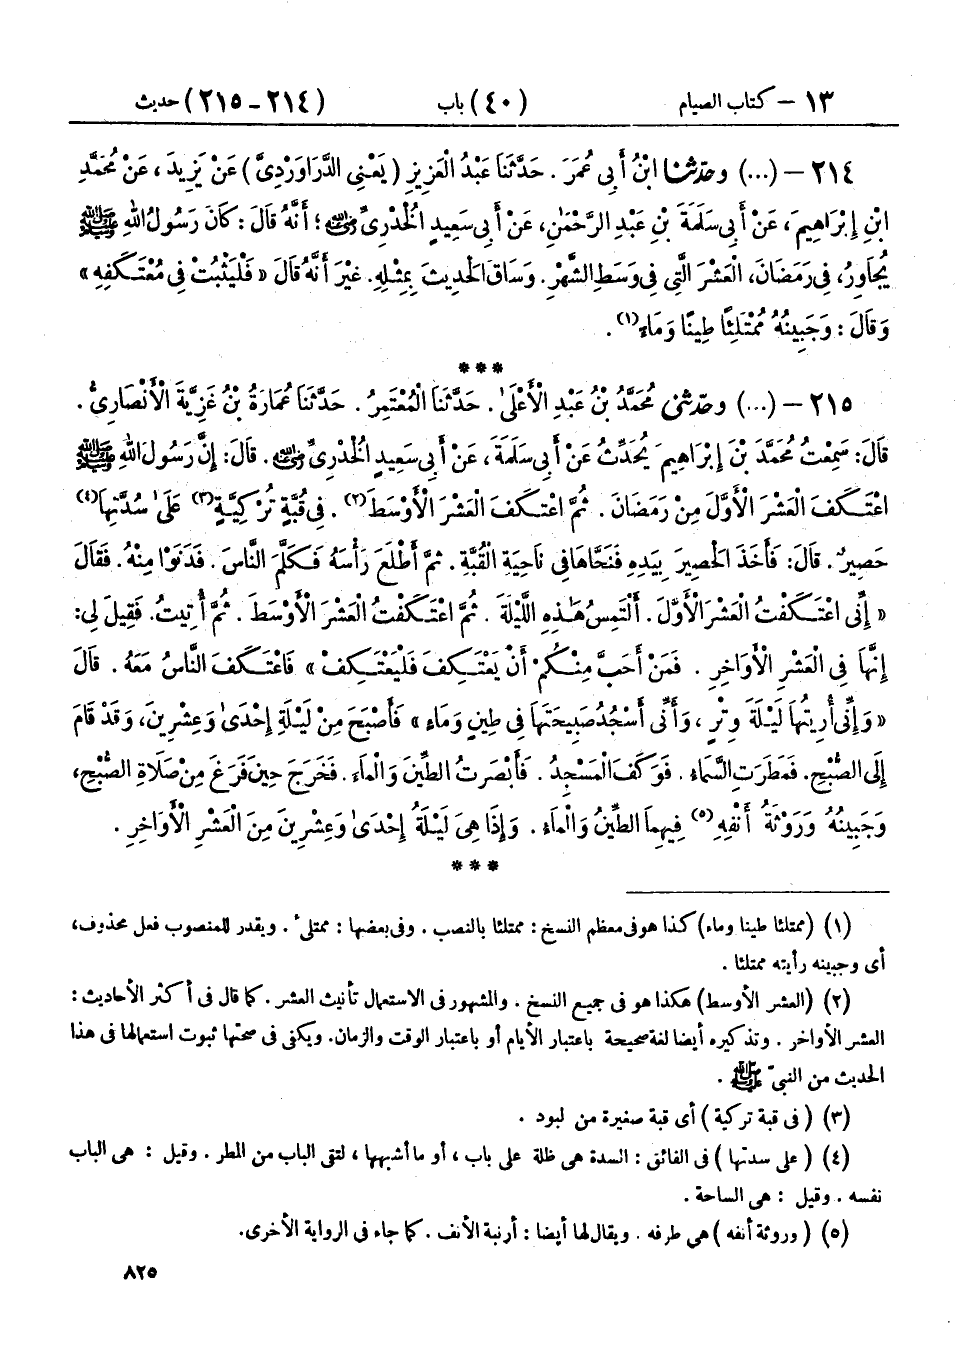 ١٣ – كتاب الصيام (٤٠) باب (٢١٤ – ٢١٥) حديث
٢١٤ – (...) وحدّثنا ابْنُ أَبِي عُمَرَ . حَدَّثَنَا عَبْدُ الْعَزِيزِ (يَعْنِي الدَّرَاوَرْدِيَّ) عَنْ يَزِيدَ ، عَنْ مُحَمَّدِ
ابْنِ إِبْرَاهِيمَ ، عَنْ أَبِي سَلَمَةَ بْنِ عَبْدِ الرَّحْمَٰنِ ، عَنْ أَبِي سَعِيدٍ الْخُدْرِيِّ رضي الله عنه ؛ أَنَّهُ قَالَ : كَانَ رَسُولُ اللهِ ﷺ
يُجَاوِرُ ، فِي رَمَضَانَ ، الْعَشْرَ الَّتِي فِي وَسَطِ الشَّهْرِ . وَسَاقَ الْحَدِيثَ بِمِثْلِهِ . غَيْرَ أَنَّهُ قَالَ « فَلْيَثْبُتْ فِي مُعْتَكَفِهِ »
وَقَالَ : وَجَبِينُهُ مُمْتَلِئًا طِينًا وَمَاءً (١) .
***
٢١٥ – (...) وحدّثني مُحَمَّدُ بْنُ عَبْدِ الْأَعْلَىٰ . حَدَّثَنَا الْمُعْتَمِرُ . حَدَّثَنَا عُمَارَةُ بْنُ غَزِيَّةَ الْأَنْصَارِيُّ .
قَالَ : سَمِعْتُ مُحَمَّدَ بْنَ إِبْرَاهِيمَ يُحَدِّثُ عَنْ أَبِي سَلَمَةَ ، عَنْ أَبِي سَعِيدٍ الْخُدْرِيِّ رضي الله عنه . قَالَ : إِنَّ رَسُولَ اللهِ ﷺ
اعْتَكَفَ الْعَشْرَ الْأَوَّلَ مِنْ رَمَضَانَ . ثُمَّ اعْتَكَفَ الْعَشْرَ الْأَوْسَطَ (٢) . فِي قُبَّةٍ تُرْكِيَّةٍ (٣) عَلَىٰ سُدَّتِهَا (٤)
حَصِيرٌ . قَالَ : فَأَخَذَ الْحَصِيرَ بِيَدِهِ فَنَحَّاهَا فِي نَاحِيَةِ الْقُبَّةِ . ثُمَّ أَطْلَعَ رَأْسَهُ فَكَلَّمَ النَّاسَ . فَدَنَوْا مِنْهُ . فَقَالَ
« إِنِّي اعْتَكَفْتُ الْعَشْرَ الْأَوَّلَ . أَلْتَمِسُ هَٰذِهِ اللَّيْلَةَ . ثُمَّ اعْتَكَفْتُ الْعَشْرَ الْأَوْسَطَ . ثُمَّ أُتِيتُ . فَقِيلَ لِي :
إِنَّهَا فِي الْعَشْرِ الْأَوَاخِرِ . فَمَنْ أَحَبَّ مِنْكُمْ أَنْ يَعْتَكِفَ فَلْيَعْتَكِفْ » فَاعْتَكَفَ النَّاسُ مَعَهُ . قَالَ
« وَإِنِّي أُرِيتُهَا لَيْلَةَ وِتْرٍ ، وَأَنِّي أَسْجُدُ صَبِيحَتَهَا فِي طِينٍ وَمَاءٍ » فَأَصْبَحَ مِنْ لَيْلَةِ إِحْدَىٰ وَعِشْرِينَ ، وَقَدْ قَامَ
إِلَى الصُّبْحِ . فَمَطَرَتِ السَّمَاءُ . فَوَكَفَ الْمَسْجِدُ . فَأَبْصَرْتُ الطِّينَ وَالْمَاءَ . فَخَرَجَ حِينَ فَرَغَ مِنْ صَلَاةِ الصُّبْحِ ،
وَجَبِينُهُ وَرَوْثَةُ أَنْفِهِ (٥) فِيهِمَا الطِّينُ وَالْمَاءُ . وَإِذَا هِيَ لَيْلَةُ إِحْدَىٰ وَعِشْرِينَ مِنَ الْعَشْرِ الْأَوَاخِرِ .
***
(١) (ممتلئا طينا وماء) كذا هو في معظم النسخ : ممتلئا بالنصب . وفي بعضها : ممتلئ . ويقدر للمنصوب فعل محذوف ،
أي وجبينه رأيته ممتلئا .
(٢) (العشر الأوسط) هكذا هو في جميع النسخ . والمشهور في الاستعمال تأنيث العشر . كما قال في أكثر الأحاديث :
العشر الأواخر . وتذكيره أيضا لغة صحيحة باعتبار الأيام أو باعتبار الوقت والزمان . ويكفي في صحتها ثبوت استعمالها في هذا
الحديث من النبيّ ﷺ .
(٣) (في قبة تركية) أي قبة صغيرة من لبود .
(٤) (على سدتها) في الفائق : السدة هي ظلة على باب ، أو ما أشبهها ، لتقي الباب من المطر . وقيل : هي الباب
نفسه . وقيل : هي الساحة .
(٥) (وروثة أنفه) هي طرفه . ويقال لها أيضا : أرنبة الأنف . كما جاء في الرواية الأخرى .
٨٢٥